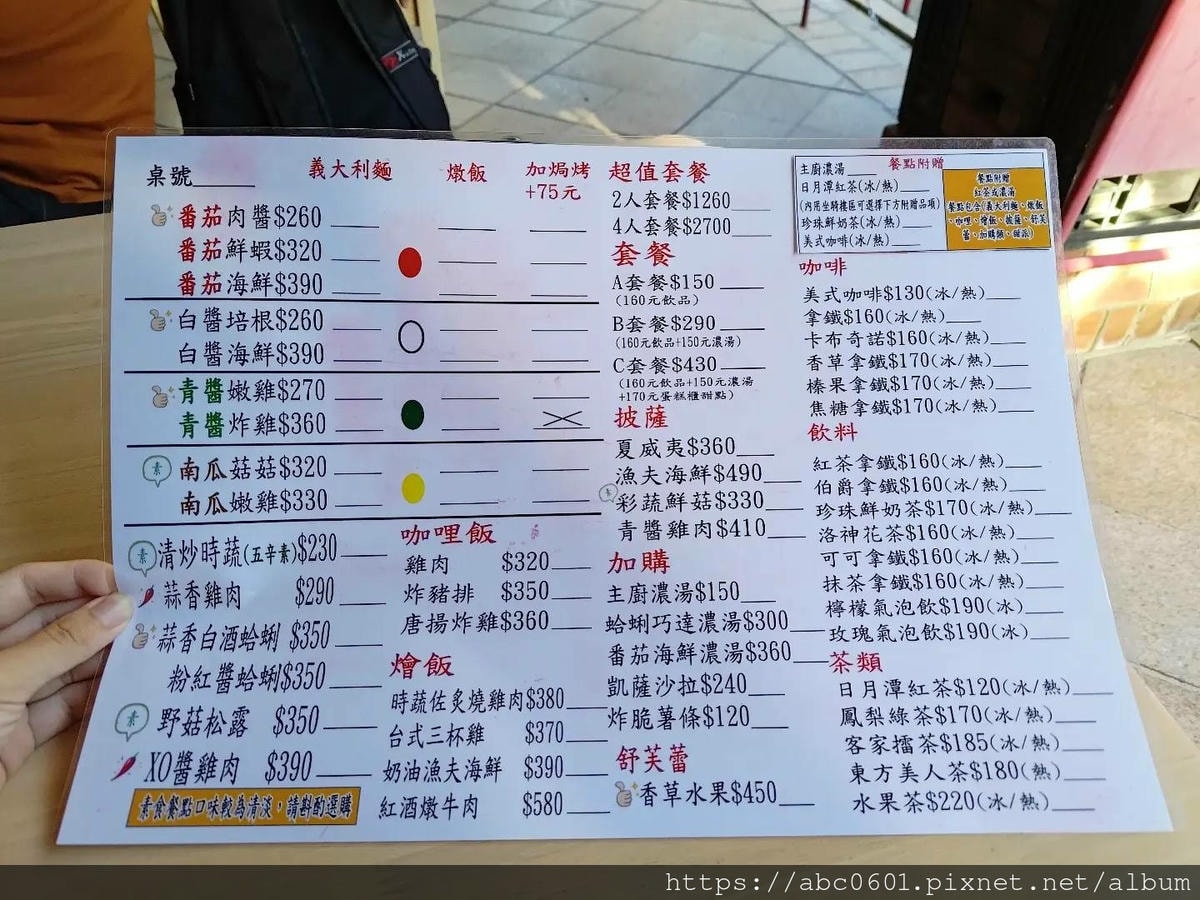 桌號____ 義大利麵 燉飯 加焗烤
+75元
番茄肉醬$260
番茄鮮蝦$320
番茄海鮮$390
白醬培根$260
白醬海鮮$390
青醬嫩雞$270
青醬炸雞$360
素 南瓜菇菇$320
南瓜嫩雞$330
素 清炒時蔬(五辛素)$230
蒜香雞肉 $290
蒜香白酒蛤蜊 $350
粉紅醬蛤蜊$350
素 野菇松露 $350
XO醬雞肉 $390
素食餐點口味較為清淡，請斟酌選購
咖哩飯
雞肉 $320
炸豬排 $350
唐揚炸雞$360
燴飯
時蔬佐炙燒雞肉$380
台式三杯雞 $370
奶油漁夫海鮮 $390
紅酒燉牛肉 $580
超值套餐
2人套餐$1260
4人套餐$2700
套餐
A套餐$150
(160元飲品)
B套餐$290
(160元飲品+150元濃湯)
C套餐$430
(160元飲品+150元濃湯
+170元蛋糕櫃甜點)
披薩
夏威夷$360
漁夫海鮮$490
素 彩蔬鮮菇$330
青醬雞肉$410
加購
主廚濃湯$150
蛤蜊巧達濃湯$300
番茄海鮮濃湯$360
凱薩沙拉$240
炸脆薯條$120
舒芙蕾
香草水果$450
餐點附贈
主廚濃湯
日月潭紅茶(冰/熱)
(內用坐騎樓區可選擇下方附贈品項)
珍珠鮮奶茶(冰/熱)
美式咖啡(冰/熱)
餐點附贈
紅茶或濃湯
餐點包含(義大利麵、燉飯
、咖哩、燴飯、披薩、舒芙
蕾、加購類、甜派)
咖啡
美式咖啡$130(冰/熱)
拿鐵$160(冰/熱)
卡布奇諾$160(冰/熱)
香草拿鐵$170(冰/熱)
榛果拿鐵$170(冰/熱)
焦糖拿鐵$170(冰/熱)
飲料
紅茶拿鐵$160(冰/熱)
伯爵拿鐵$160(冰/熱)
珍珠鮮奶茶$170(冰/熱)
洛神花茶$160(冰/熱)
可可拿鐵$160(冰/熱)
抹茶拿鐵$160(冰/熱)
檸檬氣泡飲$190(冰)
玫瑰氣泡飲$190(冰)
茶類
日月潭紅茶$120(冰/熱)
鳳梨綠茶$170(冰/熱)
客家擂茶$185(冰/熱)
東方美人茶$180(熱)
水果茶$220(冰/熱)
https://abc0601.pixnet.net/album